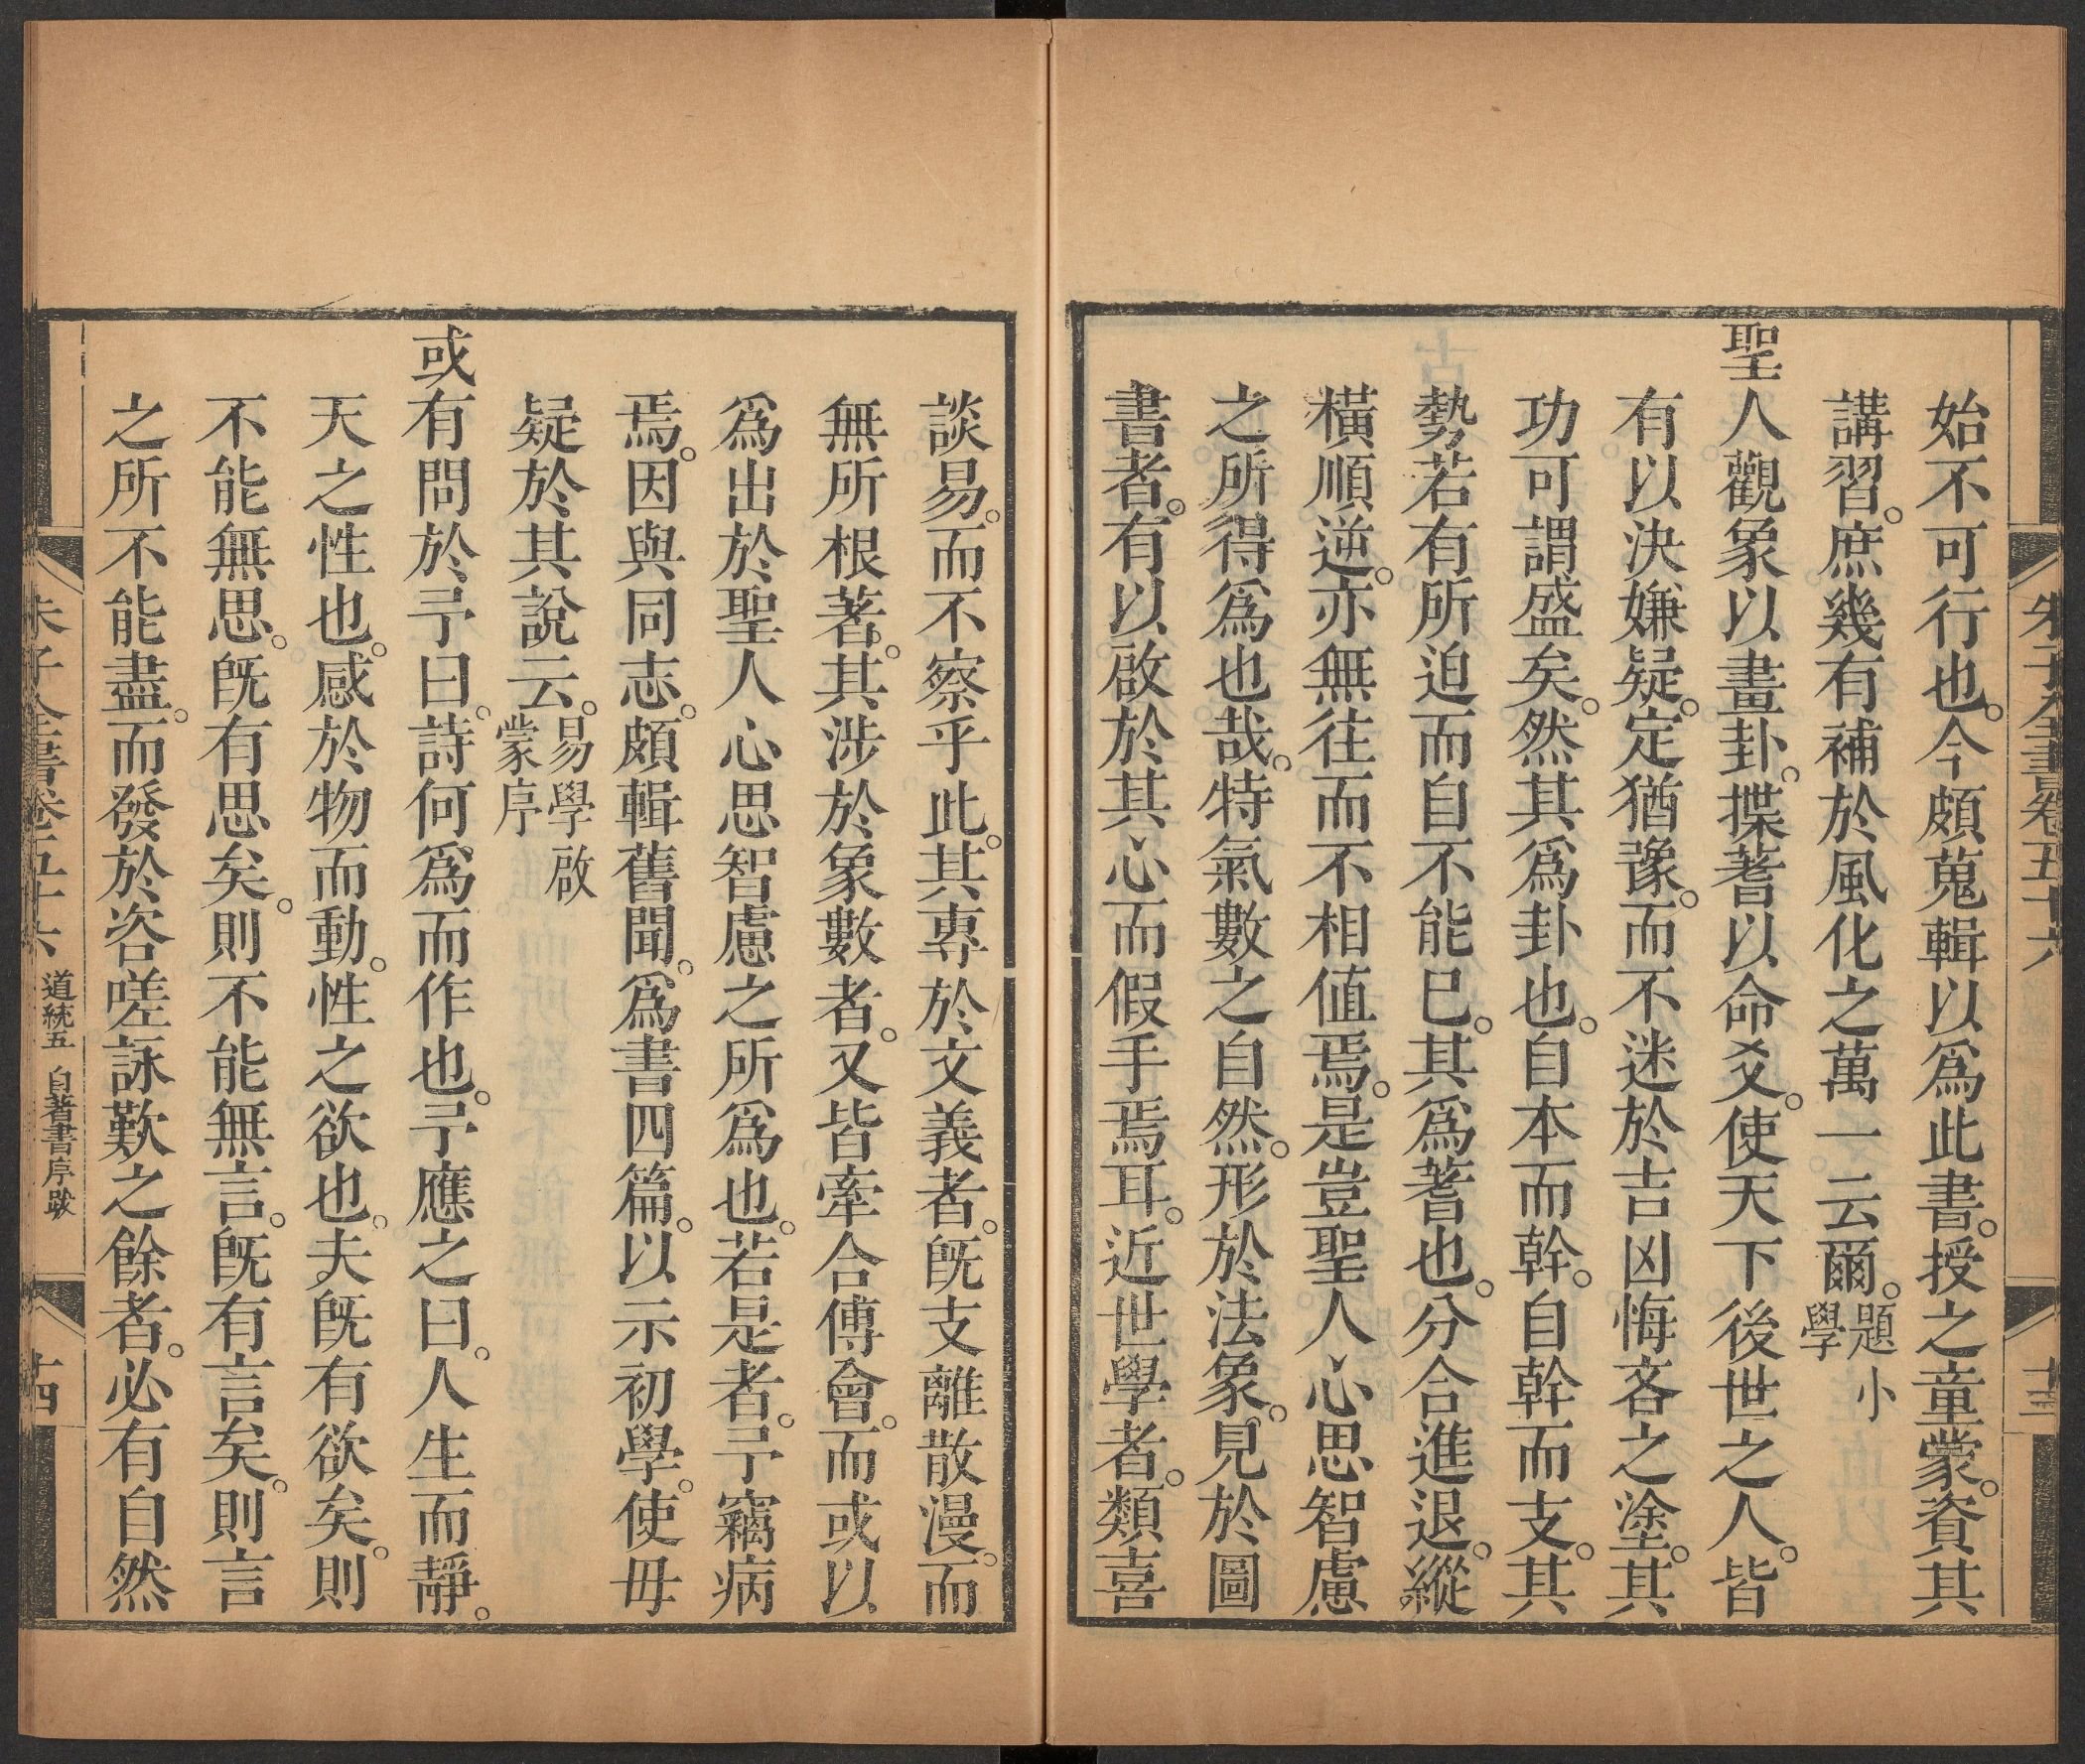 朱子全書卷五十六
十三
始不可行也。今頗蒐輯以爲此書。授之童蒙。資其
講習。庶幾有補於風化之萬一云爾。題小
學
聖人觀象以畫卦。揲蓍以命爻。使天下後世之人。皆
有以決嫌疑。定猶豫。而不迷於吉凶悔吝之塗。其
功可謂盛矣。然其爲卦也。自本而幹。自幹而支。其
勢若有所迫而自不能已。其爲蓍也。分合進退。縱
橫順逆。亦無往而不相値焉。是豈聖人心思智慮
之所得爲也哉。特氣數之自然。形於法象。見於圖
書者。有以啟於其心而假手焉耳。近世學者。類喜
談易。而不察乎此。其專於文義者。旣支離散漫。而
無所根著。其涉於象數者。又皆牽合傅會。而或以
爲出於聖人心思智慮之所爲也。若是者。予竊病
焉。因與同志。頗輯舊聞。爲書四篇。以示初學。使毋
疑於其說云。易學啟
蒙序
或有問於予曰。詩何爲而作也。予應之曰。人生而靜。
天之性也。感於物而動。性之欲也。夫旣有欲矣。則
不能無思。旣有思矣。則不能無言。旣有言矣。則言
之所不能盡。而發於咨嗟詠歎之餘者。必有自然
朱子全書卷五十六 道統五 自著書序跋
十四